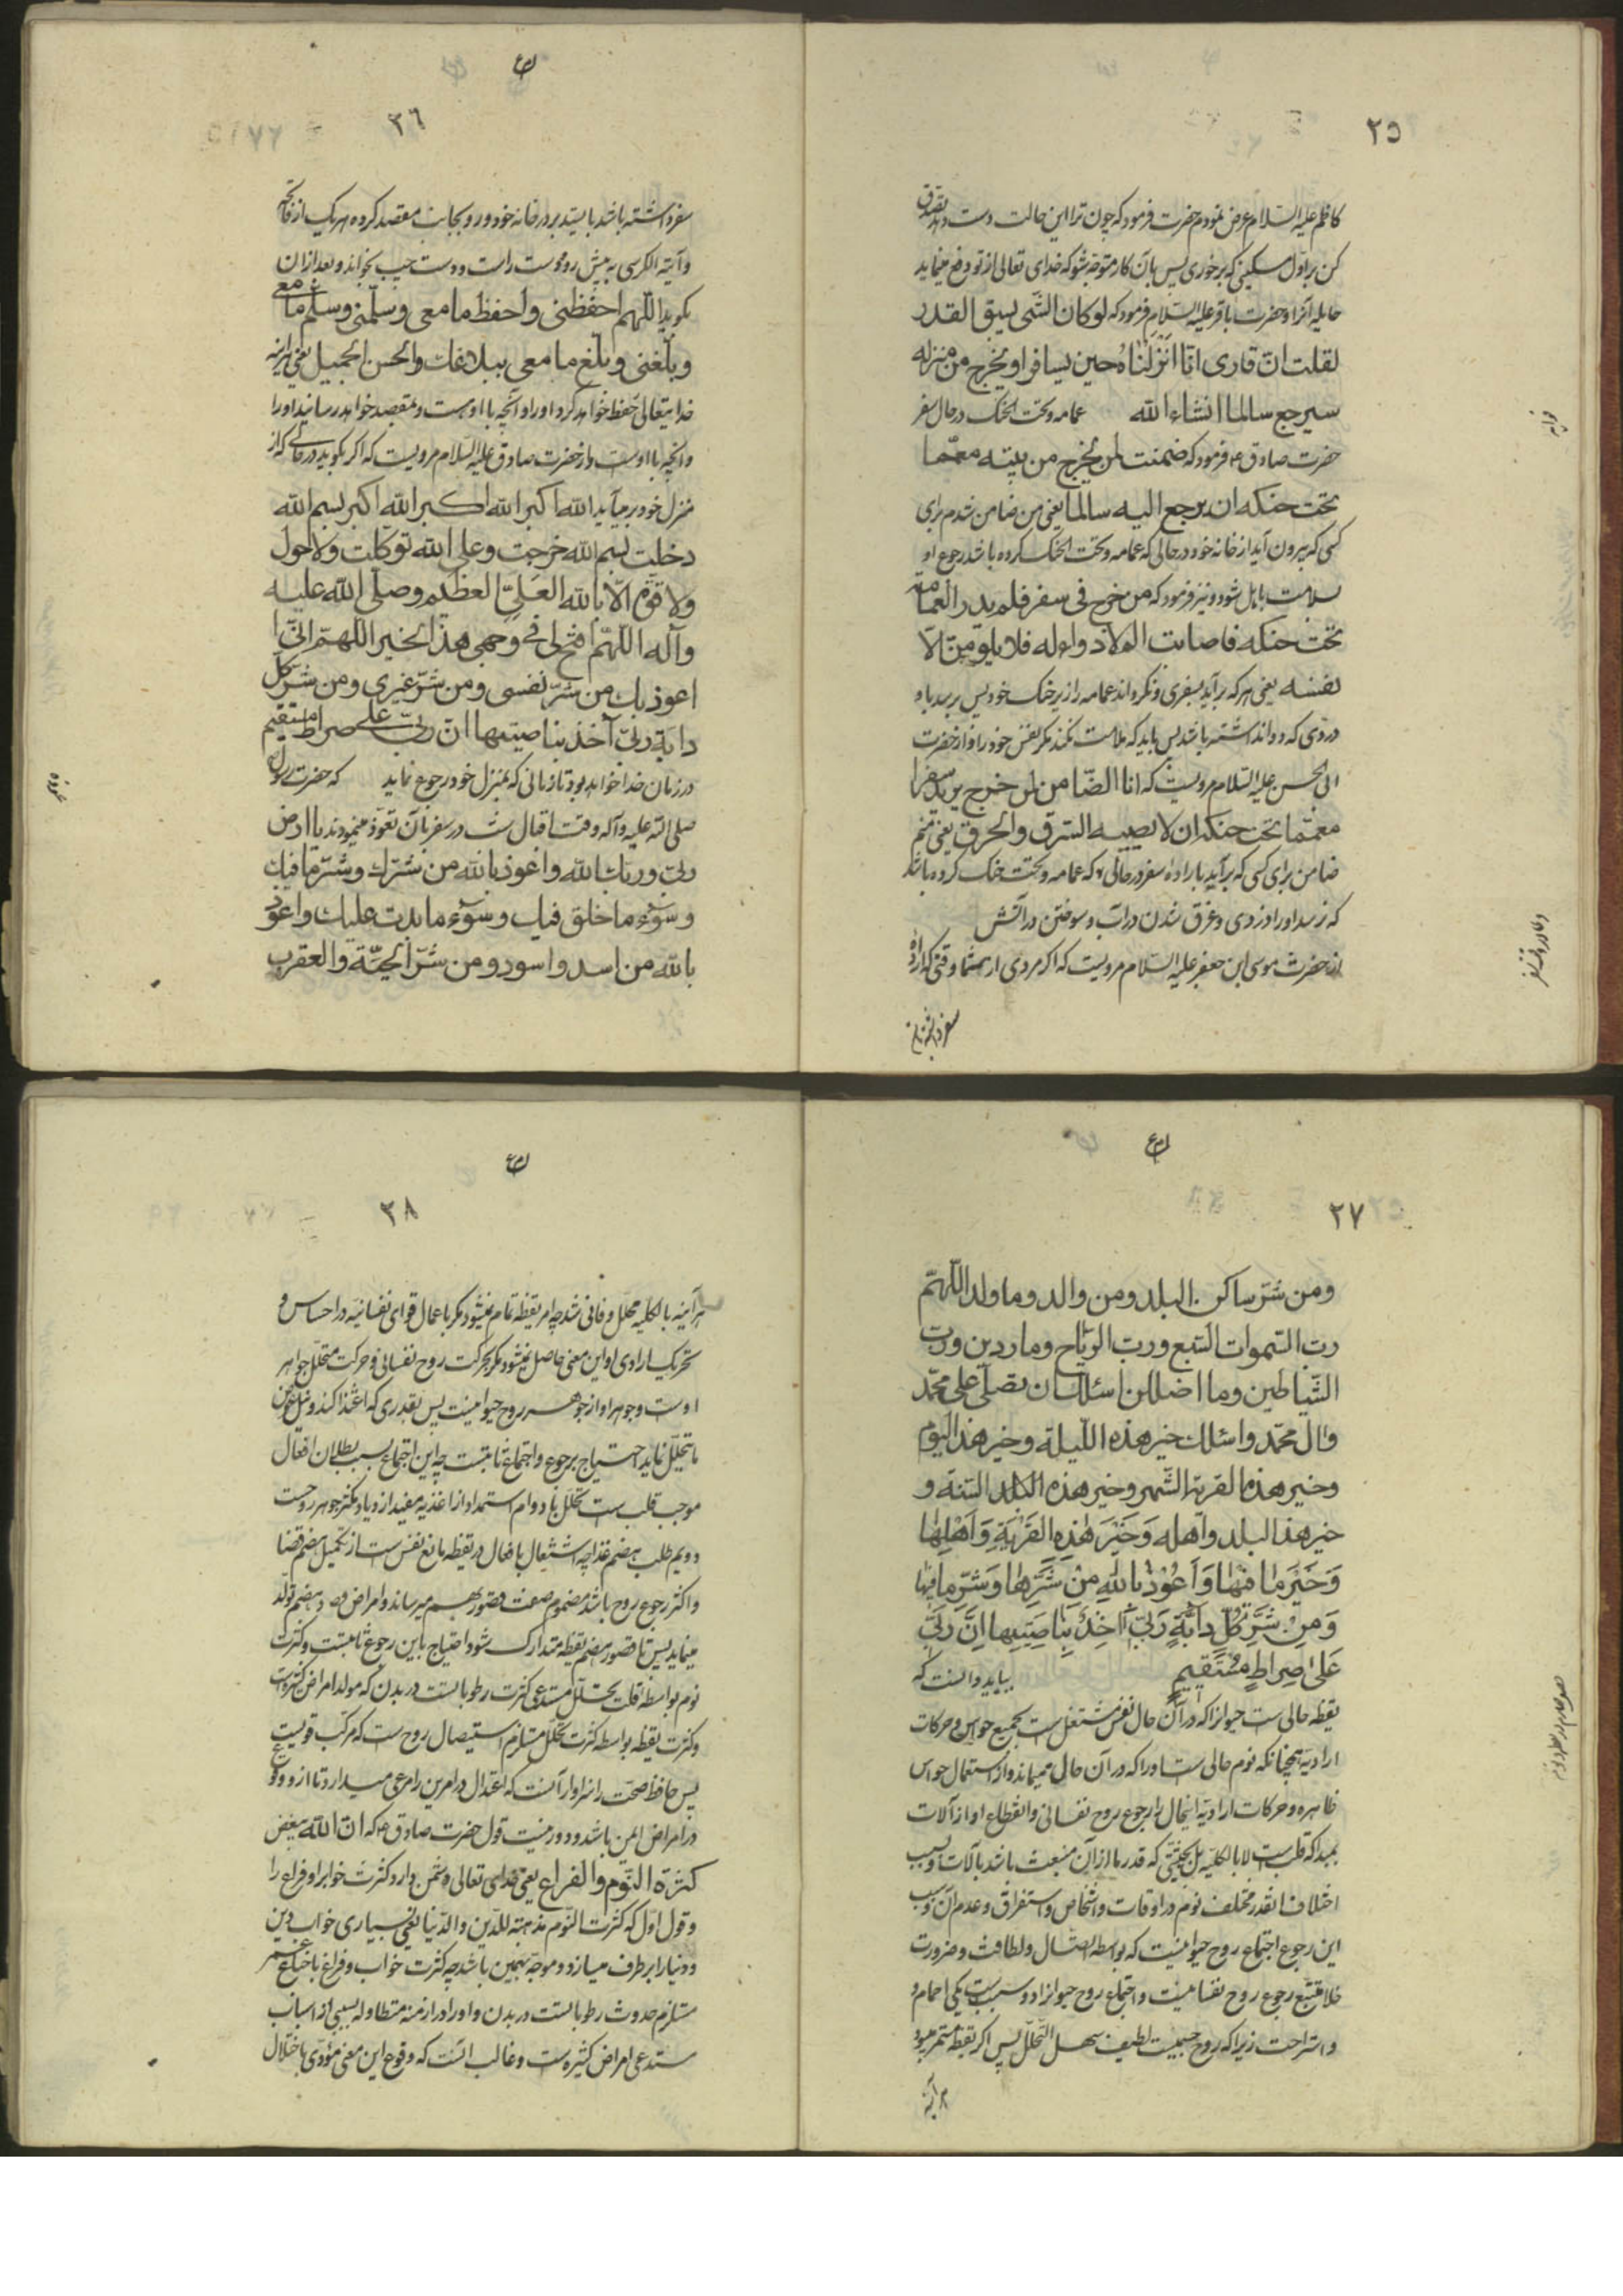 ٢٥
كاظم عليه السلام عرض نمودم حضرت فرمود كه چون ترا اين حالت دست دهد تصدق
كن بر اول مسكينى كه برخورى پس بآن كار متوجه شو كه خداى تعالى از تو دفع مينمايد
لوكان الشى يسبق القدر حضرت باقر عليه السلام فرمود كه
لقلت انّ قارى انّا انزلناه حين يسافر او يخرج من منزله
سيرجع سالما انشاء الله عمامه و تحت الحنك در حال سفر
حضرت صادق ع فرمود كه ضمنت لمن يخرج من بيته معمّما
تحت حنكه ان يرجع اليه سالما يعنى من ضامن شدم براى
كسى كه بيرون آيد از خانه خود در حالى كه عمامه و تحت الحنك كرده باشد رجوع او
بسلامت باهل خود و نيز فرمود كه من خرج فى سفر فلم يدر العمامة
تحت حنكه فاصابت الم لا دواء له فلا يلومنّ الّا
نفسه يعنى هر كه برآيد بسفرى و نگرداند عمامه را زير حنك خود پس برسد باو
دردى كه دوا نداشته باشد پس بايد كه ملامت نكند مگر نفس خود را و از حضرت
ابى الحسن عليه السلام مرويست كه انا الضامن لمن خرج يريد سفرا
معتمّا تحت حنكه ان لا يصيبه السرق والحرق يعنى منم
ضامن براى كسى كه برآيد باراده سفر در حالى كه عمامه و تحت حنك كرده باشد
كه نرسد او را دزدى و غرق شدن در آب و سوختن در آتش
از حضرت موسى ابن جعفر عليه السلام مرويست كه اگر مردى از شما وقتى كه اراده
دعا در وقت سفر
٣٦
سفر داشته باشد بايستد بر در خانه خود و رو بجانب مقصد كرده هر يك از فاتحه
وآية الكرسى به پيش رو و دست راست و دست چپ بخواند و بعد از ان
بگويد اللّهم احفظنى واحفظ ما معى وسلّمنى وسلّم ما معى
وبلّغنى وبلّغ ما معى ببلاغك الحسن الجميل يعنى هر آينه
خدايتعالى حفظ خواهد كرد او را و آنچه با اوست و بمقصد خواهد رسانيد او را
و آنچه با اوست و از حضرت صادق عليه السلام مرويست كه اگر بگويد در حالى كه از
منزل خود برميآيد الله اكبر الله اكبر الله اكبر بسم الله
دخلت بسم الله خرجت وعلى الله توكّلت ولا حول
ولا قوّة الّا بالله العلىّ العظيم وصلّى الله عليه
وآله اللّهم افتح لى فى وجهى هذا الخير اللّهم انّى
اعوذ بك من شرّ نفسى ومن شرّ غيرى ومن شرّ كلّ
دابّة ربّى آخذ بناصيتها انّ ربّى على صراط مستقيم
در زمان خدا خواهد بود تا زمانى كه بمنزل خود رجوع نمايد كه حضرت رسول
صلى الله عليه وآله وقت اقبال شب در سفر بآن تعوّذ مينمودند يا ارض
ربّى وربّك الله واعوذ بالله من شرّك وشرّ ما فيك
وسوء ما خلق فيك وسوء ما يدبّ عليك واعوذ
بالله من اسد واسود ومن شرّ الحيّة والعقرب
٢٧
ومن شرّ ساكن البلد ومن والد وما ولد اللّهمّ
ربّ السّموات السّبع وربّ الرّياح وما ردين وربّ
الشّياطين وما اضللن اسئلك ان تصلّى على محمّد
وآل محمّد واسئلك خير هذه اللّيلة وخير هذ اليوم
وخير هذه القرية الشّهر وخير هذه البلد السّنة و
خير هذا البلد واهله وَخَيْرَ هٰذِهِ القَرْيَةِ وَاَهْلِهٰا
وَخَيْرَ مٰا فِيهٰا وَاَعُوذُ بِاللهِ مِنْ شَرِّهٰا وَشَرِّ مٰا فِيهٰا
وَمِنْ شَرِّ كُلِّ دابَّةٍ رَبّى آخِذٌ بِنٰاصِيَتِهٰا اِنَّ رَبّى
عَلىٰ صِراطٍ مُسْتَقيمٍ ببايد دانست كه
يقظه حالى است حيوانرا كه در آن حال نفس مشتغل است بجميع حواس و حركات
اراديه همچنانكه نوم حالى است او را كه در آن حال ميماند از استعمال حواس
ظاهره و حركات اراديه اينحال را رجوع روح نفسانى و انقطاع او از آلات
بمبدا كه قلب است لا بالكليه بل بحيثيتى كه قدر ما از آن منبعث باشد بآلات و بسبب
اختلاف آنقدر مختلف نوم در اوقات و اشخاص و استغراق و عدم آن و سبب
اين رجوع اجتماع روح حيوانيست كه بواسطه اتصال و لطافت و ضرورت
خلا متتبع رجوع روح نفسانيست و اجتماع روح حيوانرا دو سبب است يكى اجمام و
و استراحت زيرا كه روح جسميست لطيف سهل التحلل پس اگر يقظه مستمر ميبود
هر آينه
٢٨
هر آينه بالكليه محلل و فانى شد چه امر يقظه تمام نميشود مگر باعمال قواى نفسانيه در احساس و
تحريك ارادى و اين معنى حاصل نميشود مگر بحركت روح نفسانى و حركت محلل جواهر
اوست و جوهر او از جوهر روح حيوانيست پس بقدرى كه اغتذا كند و بدل عوض
ما تحلل نمايد احتياج برجوع و اجتماع ثابتست چه اين اجتماع بسبب بطلان افعال
موجب قلت است تحلل با دوام استمداد از اغذيه مفيد ازدياد و تكثر جوهر روحست
دويم طلب هضم غذا چه اشتغال بافعال در يقظه مانع نفس است از تكميل هضم قضا
و اكثر رجوع روح باشد هضم صفت قصور بهم ميرساند و امراض هضم تولد
مينمايد پس تا قصور هضم يقظه متدارك شود احتياج باين رجوع ثابتست و كثرت
نوم بواسطه قلت تحلل مستدعى كثرت رطوباتست در بدن كه مولد امراض كثيره است
و كثرت يقظه بواسطه كثرت تحلل مستلزم استيصال روح ست كه مركب قويست
پس حافظ صحت را سزاوار آنست كه اعتدال در امرين را مرعى ميدارد تا از وقوع
در امراض ايمن باشد و دور نيست قول حضرت صادق ع كه انّ الله يبغض
كثرة النّوم والفراغ يعنى خداى تعالى دشمن دارد كثرت خواب و فراغ را
و قول اول كه كثرت النّوم مذهبة للدّين والدّنيا يعنى بسيارى خواب دين
و دنيا را برطرف ميسازد و موجه بهمين باشد چه كثرت خواب و فراغ
مستلزم حدوث رطوباتست در بدن و او را در ازمنه متطاوله بسببى از اسباب
مستدعى امراض كثيره ست و غالب آنست كه وقوع اين معنى مؤدّى باختلال